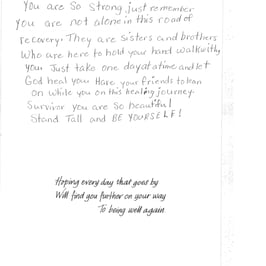 You are so strong just remember
you are not alone in this road of
recovery. They are sisters and brothers
Who are here to hold your hand walk with
you Just take one day at a time and let
God heal you Have your friends to lean
on while you on this healing journey.
Survivor you are so beautiful!
Stand Tall and BE YOURSELF!
Hoping every day that goes by
Will find you further on your way
To being well again.